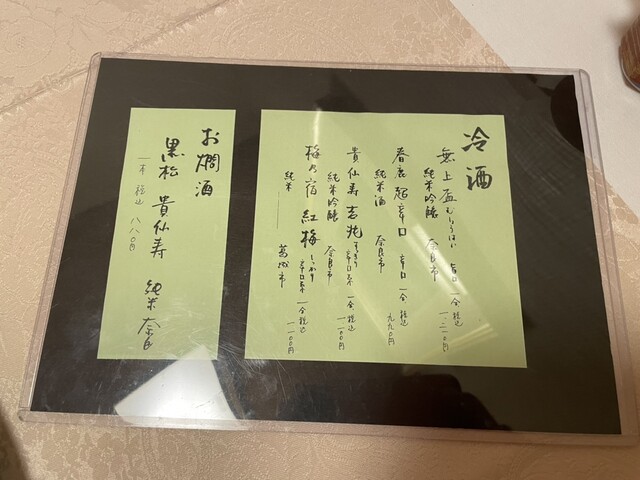 冷酒
無上盃 むじょうはい 辛口 一合 税込
純米吟醸 奈良市 一、二一〇円
春鹿 超辛口 辛口 一合 税込
純米酒 奈良市 九九〇円
貴仙寿 吉兆 すっきり 辛口系 一合 税込
純米吟醸 奈良市 一一〇〇円
梅乃宿 紅梅 しっかり 辛口系 一合 税込
純米 葛城市 一一〇〇円
お燗酒
黒松 貴仙寿 純米 奈良
一本 税込 八八〇円